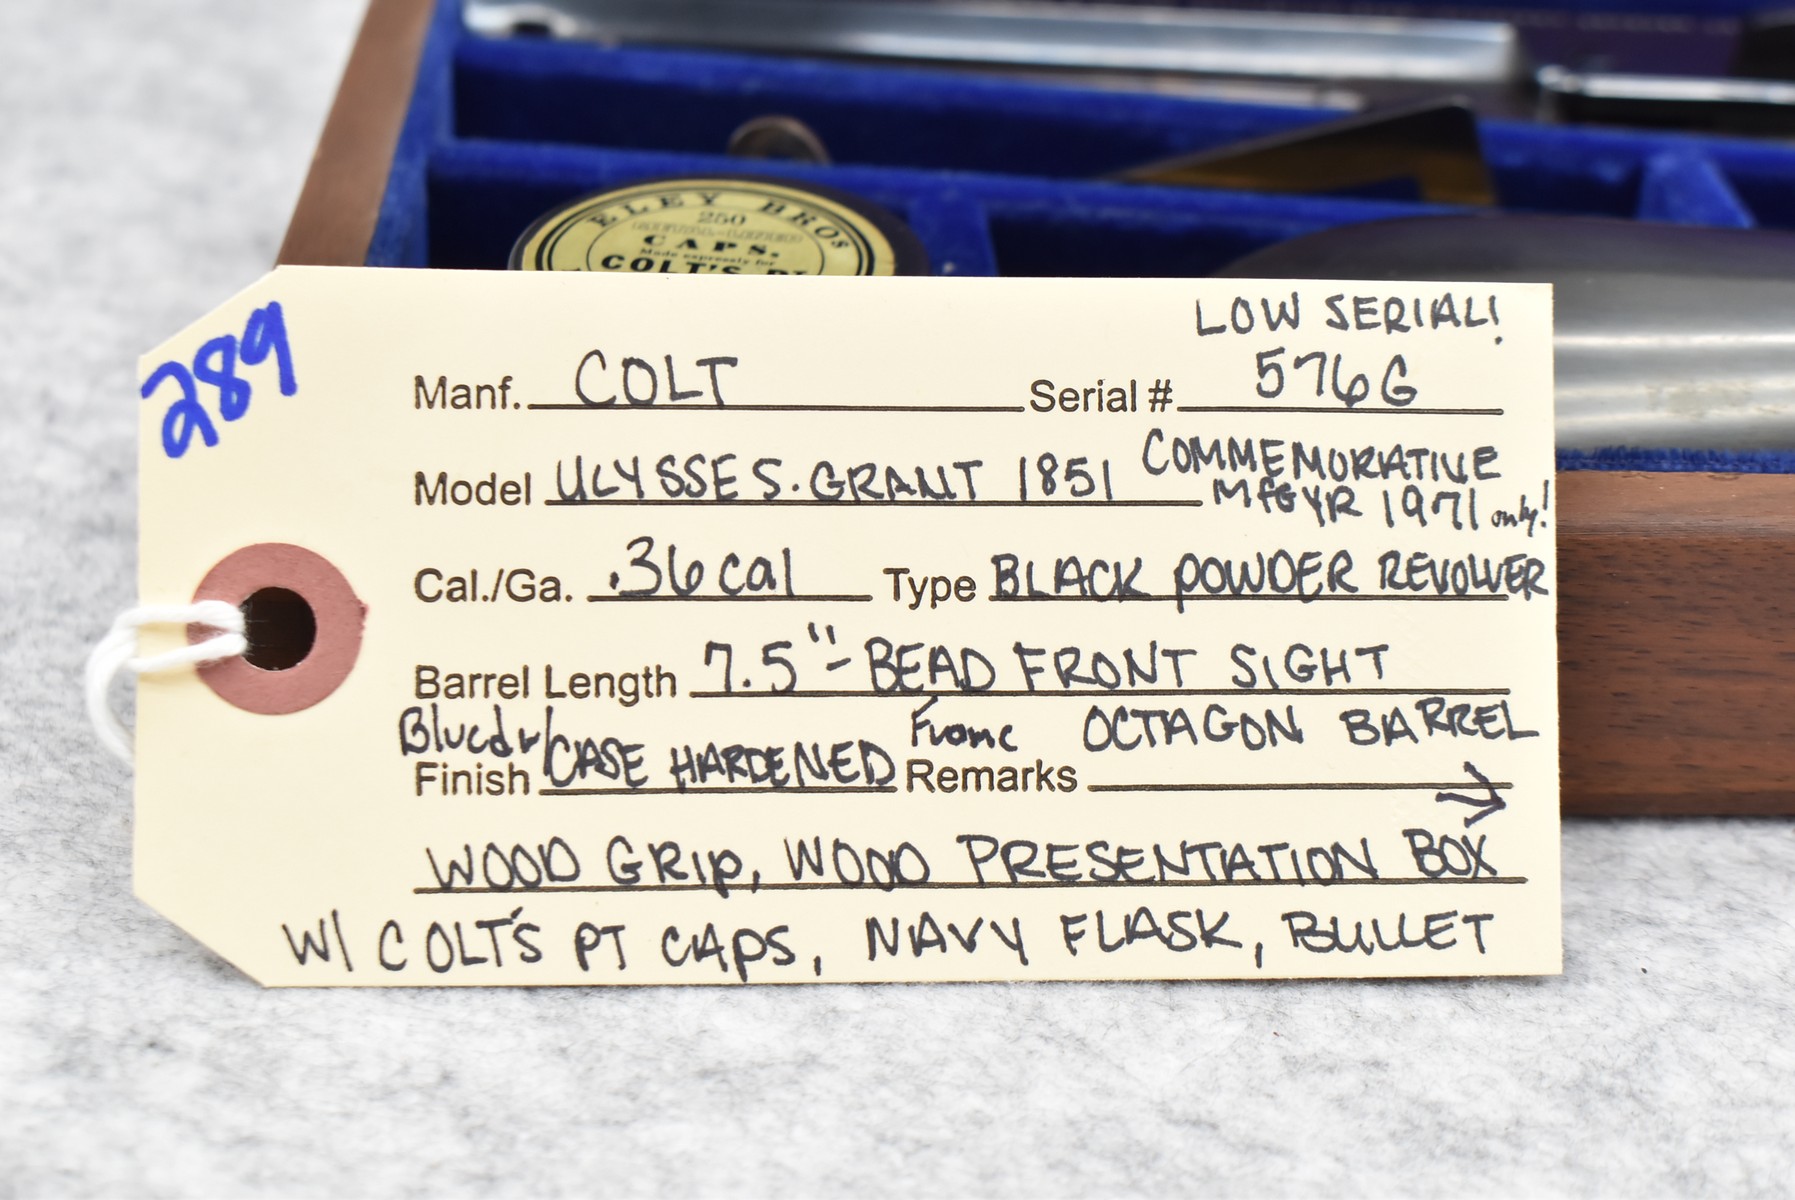 ELEY BROS
250
METAL-LINED
CAPS,
Made expressly for
COLT'S
289
LOW SERIAL!
Manf. COLT Serial # 576G
Model ULYSSE S. GRANT 1851 COMMEMORATIVE
MFG YR 1971 only!
Cal./Ga. .36 cal Type BLACK POWDER REVOLVER
Barrel Length 7.5" - BEAD FRONT SIGHT
Finish Blued / CASE HARDENED Frame Remarks OCTAGON BARREL →
WOOD GRIP, WOOD PRESENTATION BOX
W/ COLT'S PT CAPS, NAVY FLASK, BULLET